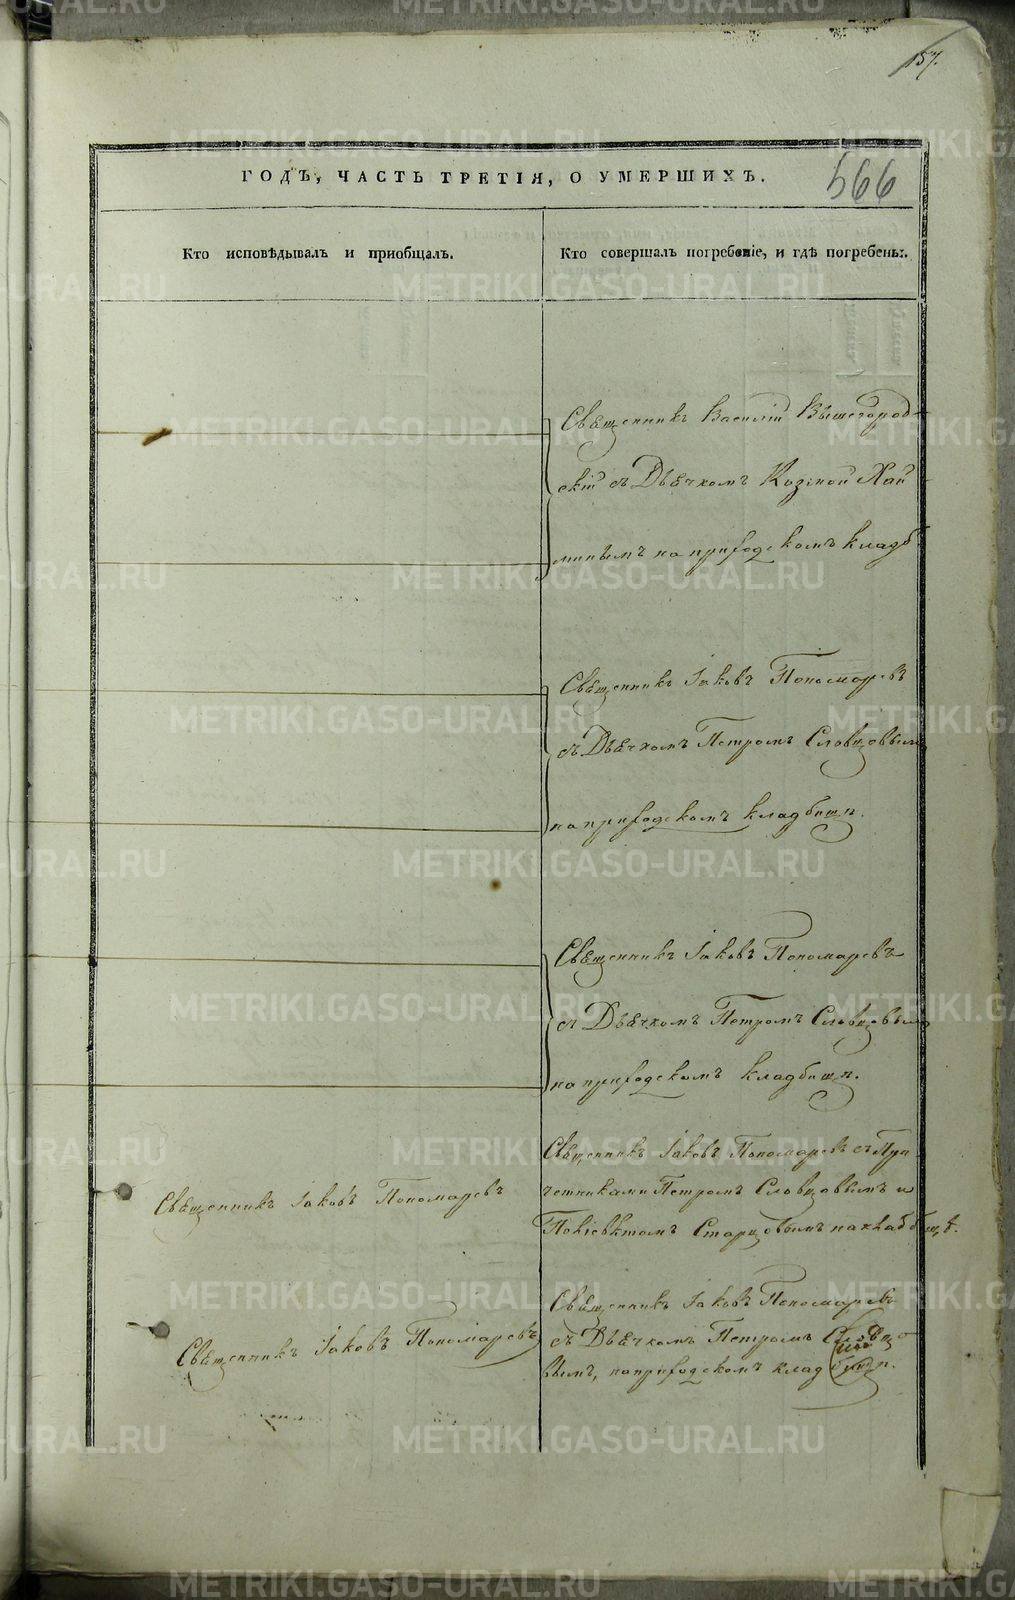 157.
566
ГОДЪ, ЧАСТЬ ТРЕТІЯ, О УМЕРШИХЪ.
Кто исповѣдывалъ и приобщалъ.
Кто совершалъ погребеніе, и гдѣ погребены.
Священникъ Василій Вышегород-
скій съ Дьячкомъ Козмой Хай-
минымъ на приходскомъ кладб.
Священникъ Іаковъ Пономаревъ
съ Дьячкомъ Петромъ Словцовымъ
на приходскомъ кладбищѣ.
Священникъ Іаковъ Пономаревъ
съ Дьячкомъ Петромъ Словцовымъ
на приходскомъ кладбищѣ.
Священникъ Іаковъ Пономаревъ
Священникъ Іаковъ Пономаревъ съ При
четниками Петромъ Словцовымъ и
Старцовымъ на кладбищѣ.
Священникъ Іаковъ Пономаревъ
Священникъ Іаковъ Пономаревъ
съ Дьячкомъ Петромъ Словцо
вымъ, на приходскомъ кладбищѣ.
METRIKI.GASO-URAL.RU